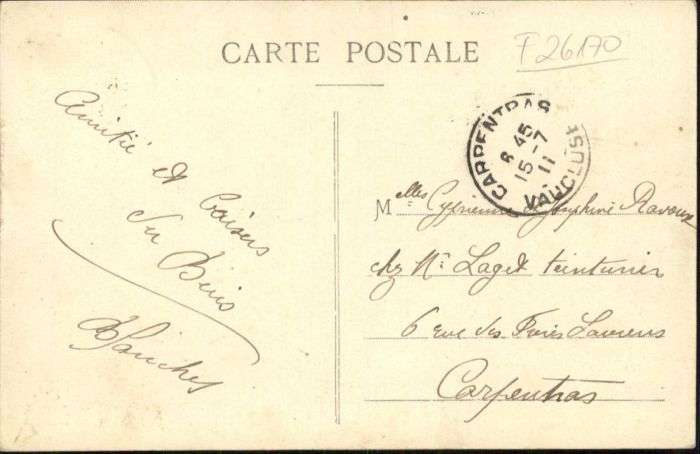 CARTE POSTALE
F 26170
Amitié et
baisers
du Buis
Blanches
CARPENTRAS
8 45
15 - 7
11
VAUCLUSE
Melles Cyprienne et Joséphine Ravoux
chez Mr Laget teinturier
6 rue des Frères Laurens
Carpentras